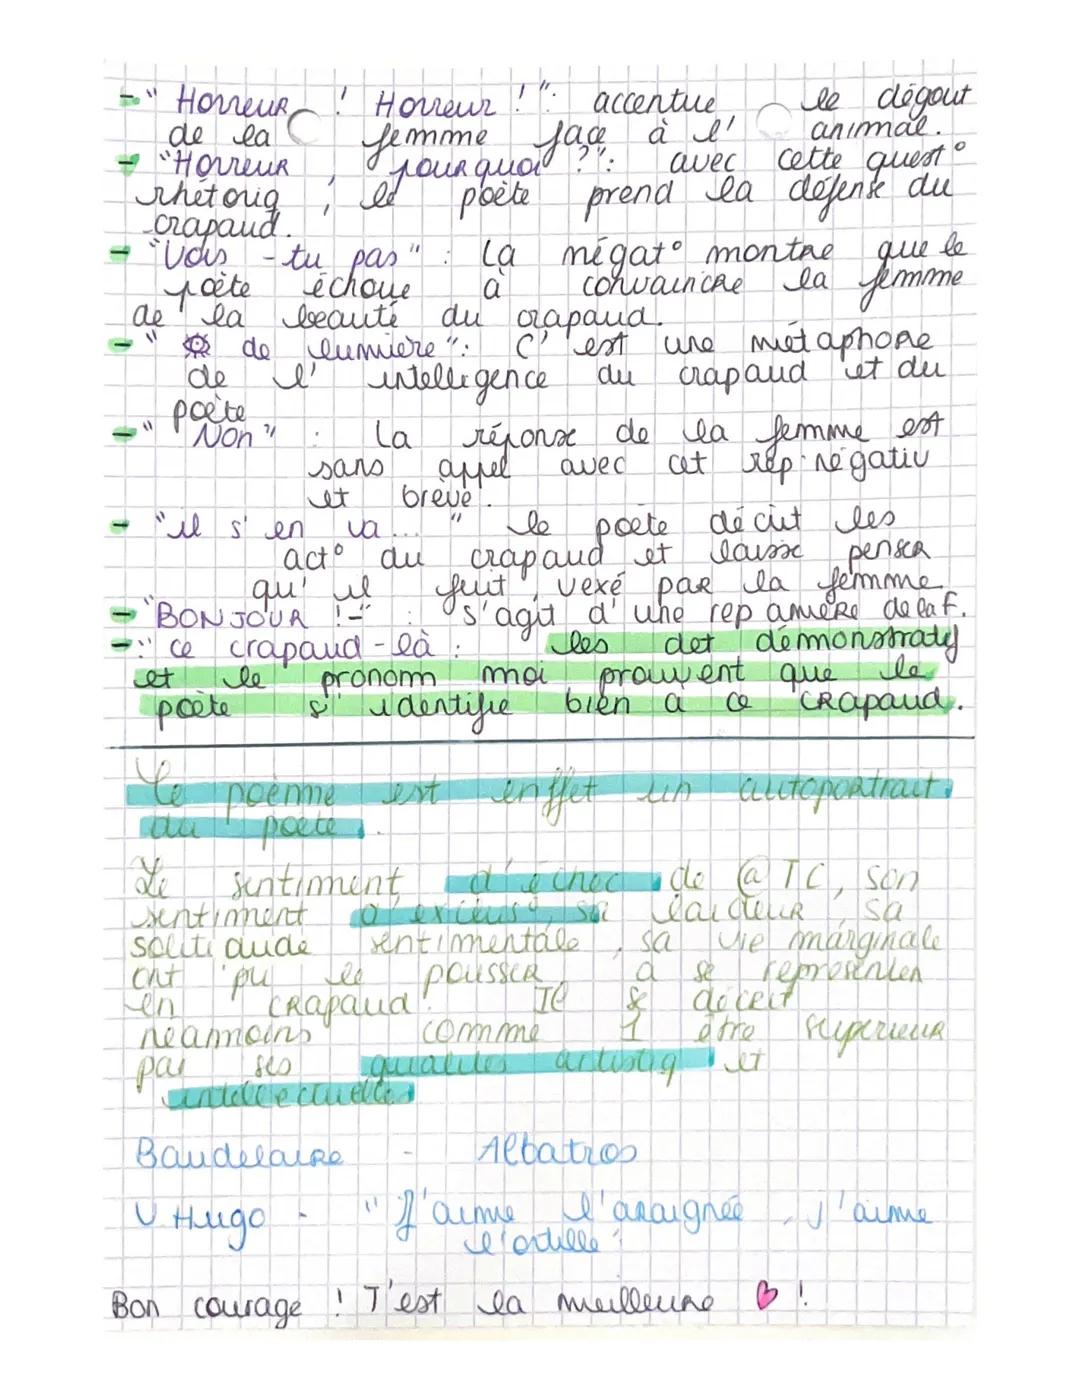 - " Horreur ! Horreur ! " : accentue le dégout
de la femme face à l' animal.
- "Horreur , pourquoi ?" : avec cette quest°
rhétoriq , le poète prend la défense du
crapaud.
- "Vois - tu pas" : La négat° montre que le
poète échoue à convaincre la femme
de la beauté du crapaud.
- " de lumière" : C' est une métaphore
de l' intelligence du crapaud et du
poète
- " Non " : La réponse de la femme est
sans appel avec cet rép négativ
et brève.
- "il s' en va ... " le poète décrit les
act° du crapaud et laisse penser
qu' il fut vexé par la femme.
- "BONJOUR !-" : s'agit d' une rep amère de la f.
- " ce crapaud - là : les det démonstratif
et le pronom moi prouvent que le
poète s' identifie bien à ce CRapaud.
Le poènme est enffet un autoportrait
du poète.
Le sentiment d'échec de @ TC, son
sentiment d'exclus°, sa laideur, sa
solitiaude sentimentale, sa vie marginale
ont pu le pousser à se représenter
en CRapaud. Il se décrit
néanmoins comme 1 être supérieur
par ses qualités artistiq et
intellectuelles
Baudelaire - Albatros
V. Hugo - " J'aime l'araignée , j'aime
l'ortille "
Bon courage ! T'est la meilleure !